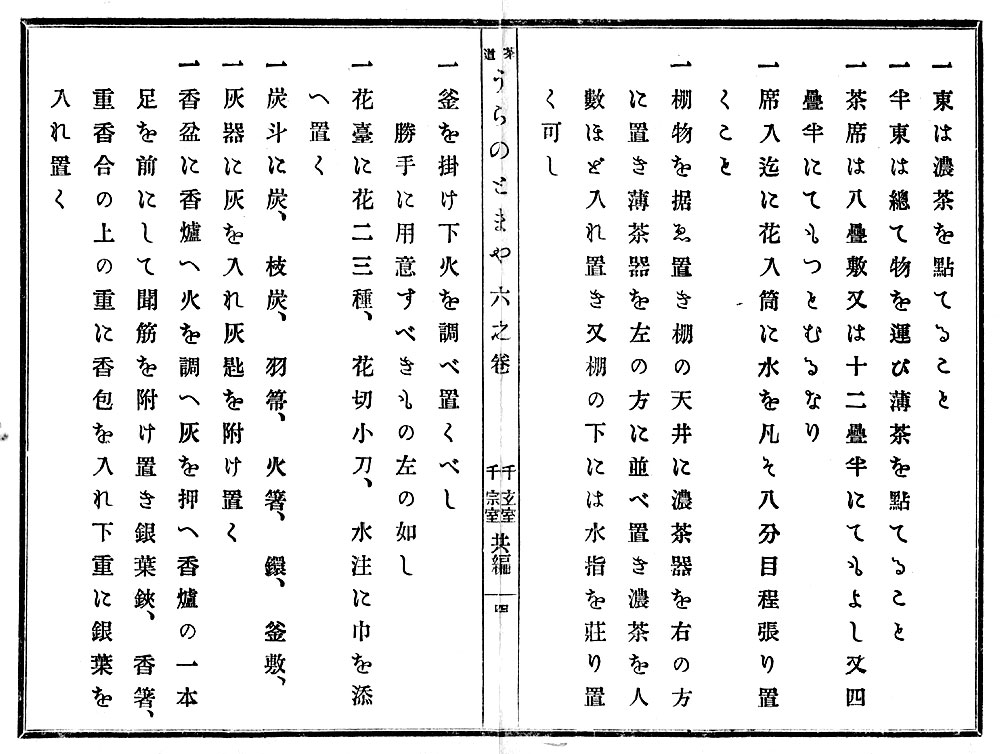 一東は濃茶を點てること
一半東は總て物を運び薄茶を點てること
一茶席は八疊敷又は十二疊半にてもよし又四
疊半にてもつとむるなり
一席入迄に花入筒に水を凡そ八分目程張り置
くこと
一棚物を据ゑ置き棚の天井に濃茶器を右の方
に置き薄茶器を左の方に並べ置き濃茶を人
數ほど入れ置き又棚の下には水指を莊り置
く可し
茶道 うらのとまや六之卷 千玄室 千宗室 共編 四
一釜を掛け下火を調べ置くべし
勝手に用意すべきもの左の如し
一花臺に花二三種、花切小刀、水注に巾を添
へ置く
一炭斗に炭、枝炭、羽箒、火箸、鐶、釜敷、
一灰器に灰を入れ灰匙を附け置く
一香盆に香爐へ火を調へ灰を押へ香爐の一本
足を前にして聞筋を附け置き銀葉鋏、香箸、
重香合の上の重に香包を入れ下重に銀葉を
入れ置く